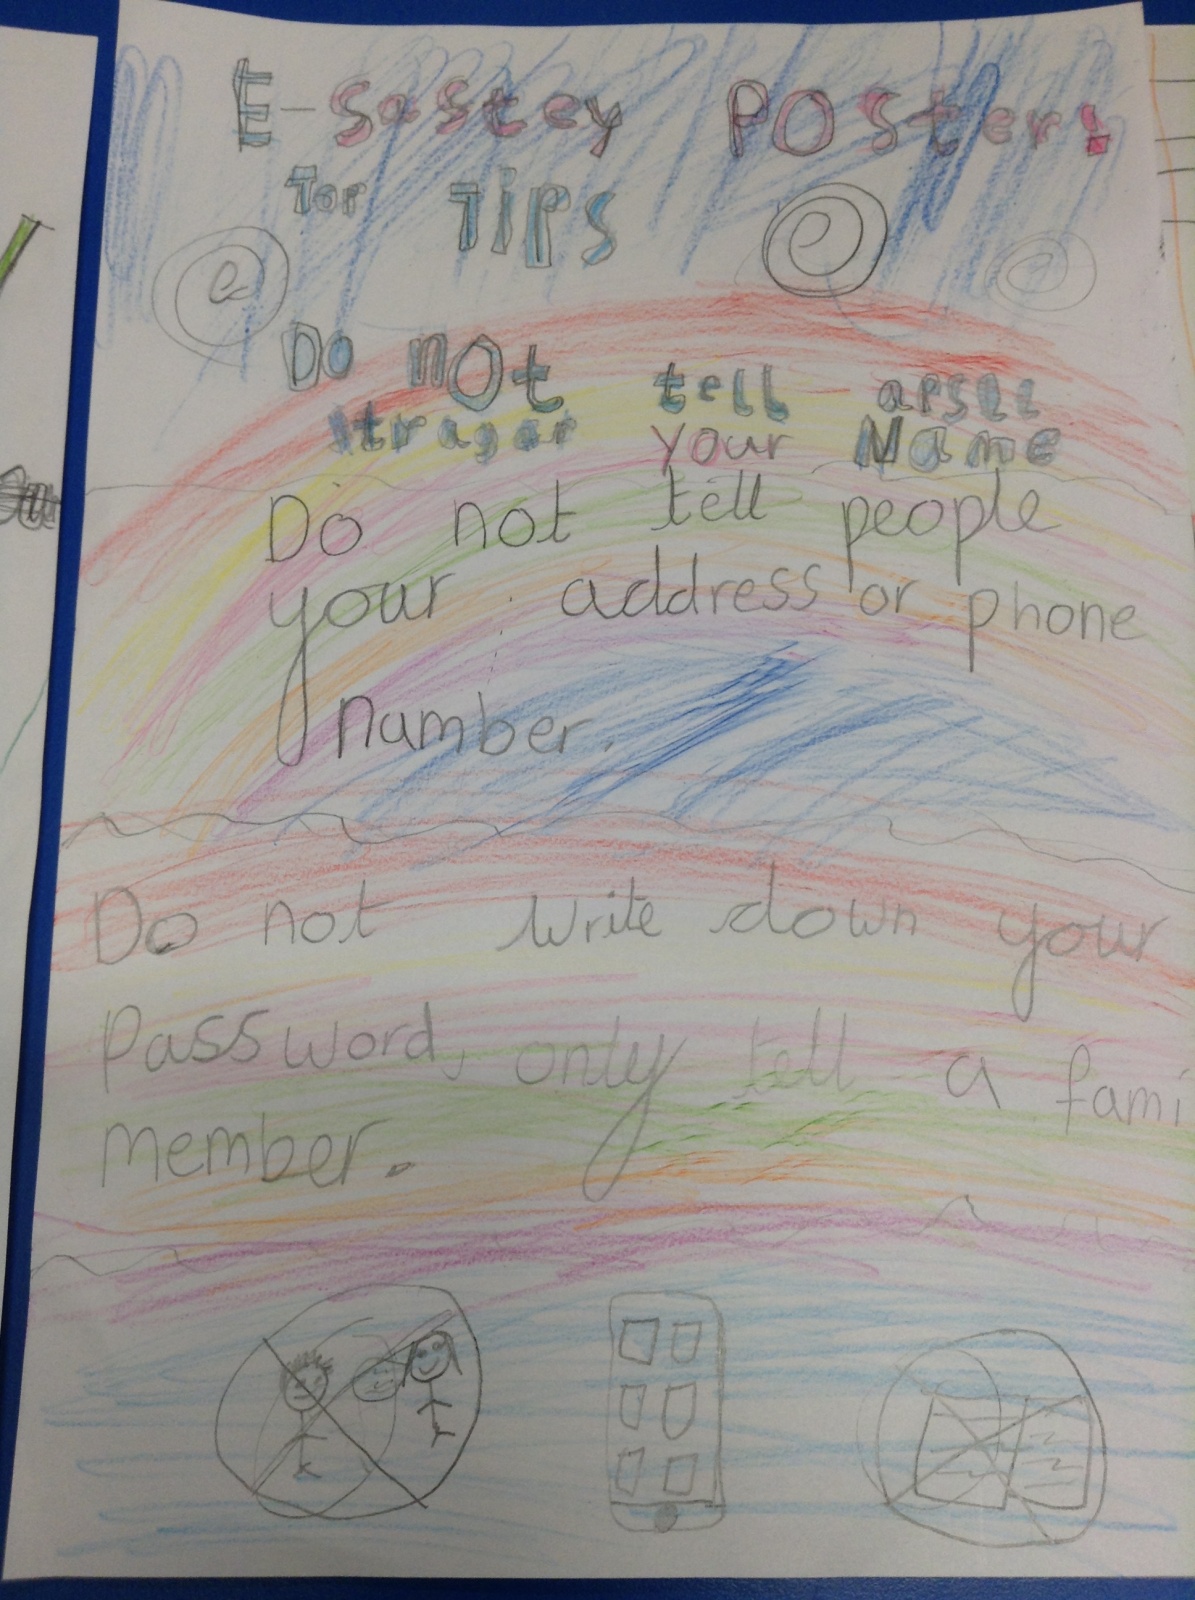 E-sastey Poster!
For Tips
e e e
Do not tell apsll
stragar your Name
Do not tell people
your address or phone
number.
Do not write down your
Password, only tell a fami
member.